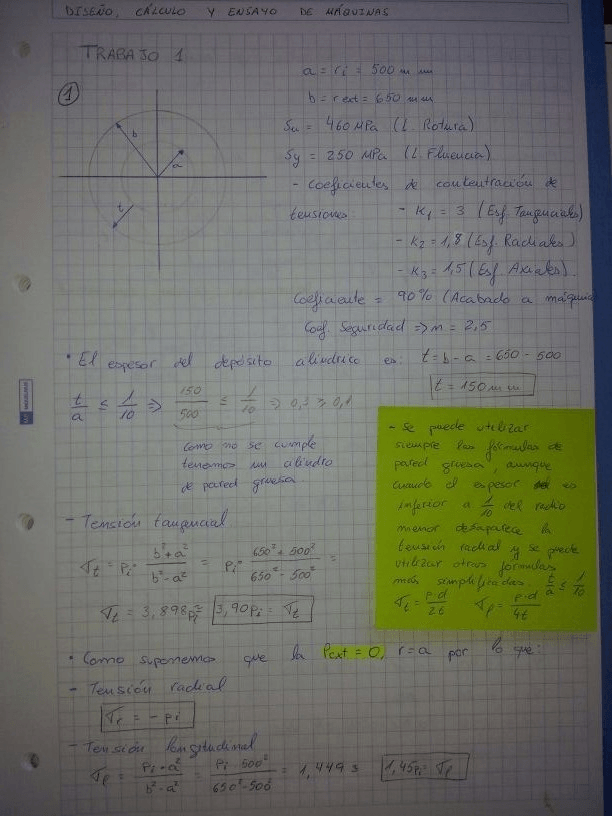 DISEÑO, CÁLCULO Y ENSAYO DE MÁQUINAS
TRABAJO 1
①
b
a
t
a = ri = 500 mm
b = rext = 650 mm
Su = 460 MPa (L. Rotura)
Sy = 250 MPa (L Fluencia)
- Coeficientes de concentración de
tensiones: - K1 = 3 (Esf. Tangenciales)
- K2 = 1,8 (Esf. Radiales)
- K3 = 1,5 (Esf. Axiales).
Coeficiente = 90% (Acabado a máquina
Coef. Seguridad => n = 2,5
· El espesor del depósito cilíndrico es: t = b - a = 650 - 500
t = 150 mm
t/a ≤ 1/10 => 150/500 ≤ 1/10 => 0,3 ≥ 0,1
Como no se cumple
tenemos un cilindro
de pared gruesa
- Se puede utilizar
siempre las fórmulas de
pared gruesa, aunque
cuando el espesor es
inferior a 1/10 del radio
menor desaparece la
tensión radial y se puede
utilizar otras fórmulas
más simplificadas. t/a ≤ 1/10
σt = p·d/2t σl = p·d/4t
- Tensión tangencial
σt = pi· b²+a²/b²-a² = pi· 650²+500²/650²-500² =
σt = 3,898pi = 3,90pi = σt
· Como suponemos que la Pext = 0, r = a por lo que:
- Tensión radial
σr = - pi
- Tensión longitudinal
σl = pi·a²/b²-a² = pi·500²/650²-500² = 1,449 3 1,45pi = σl